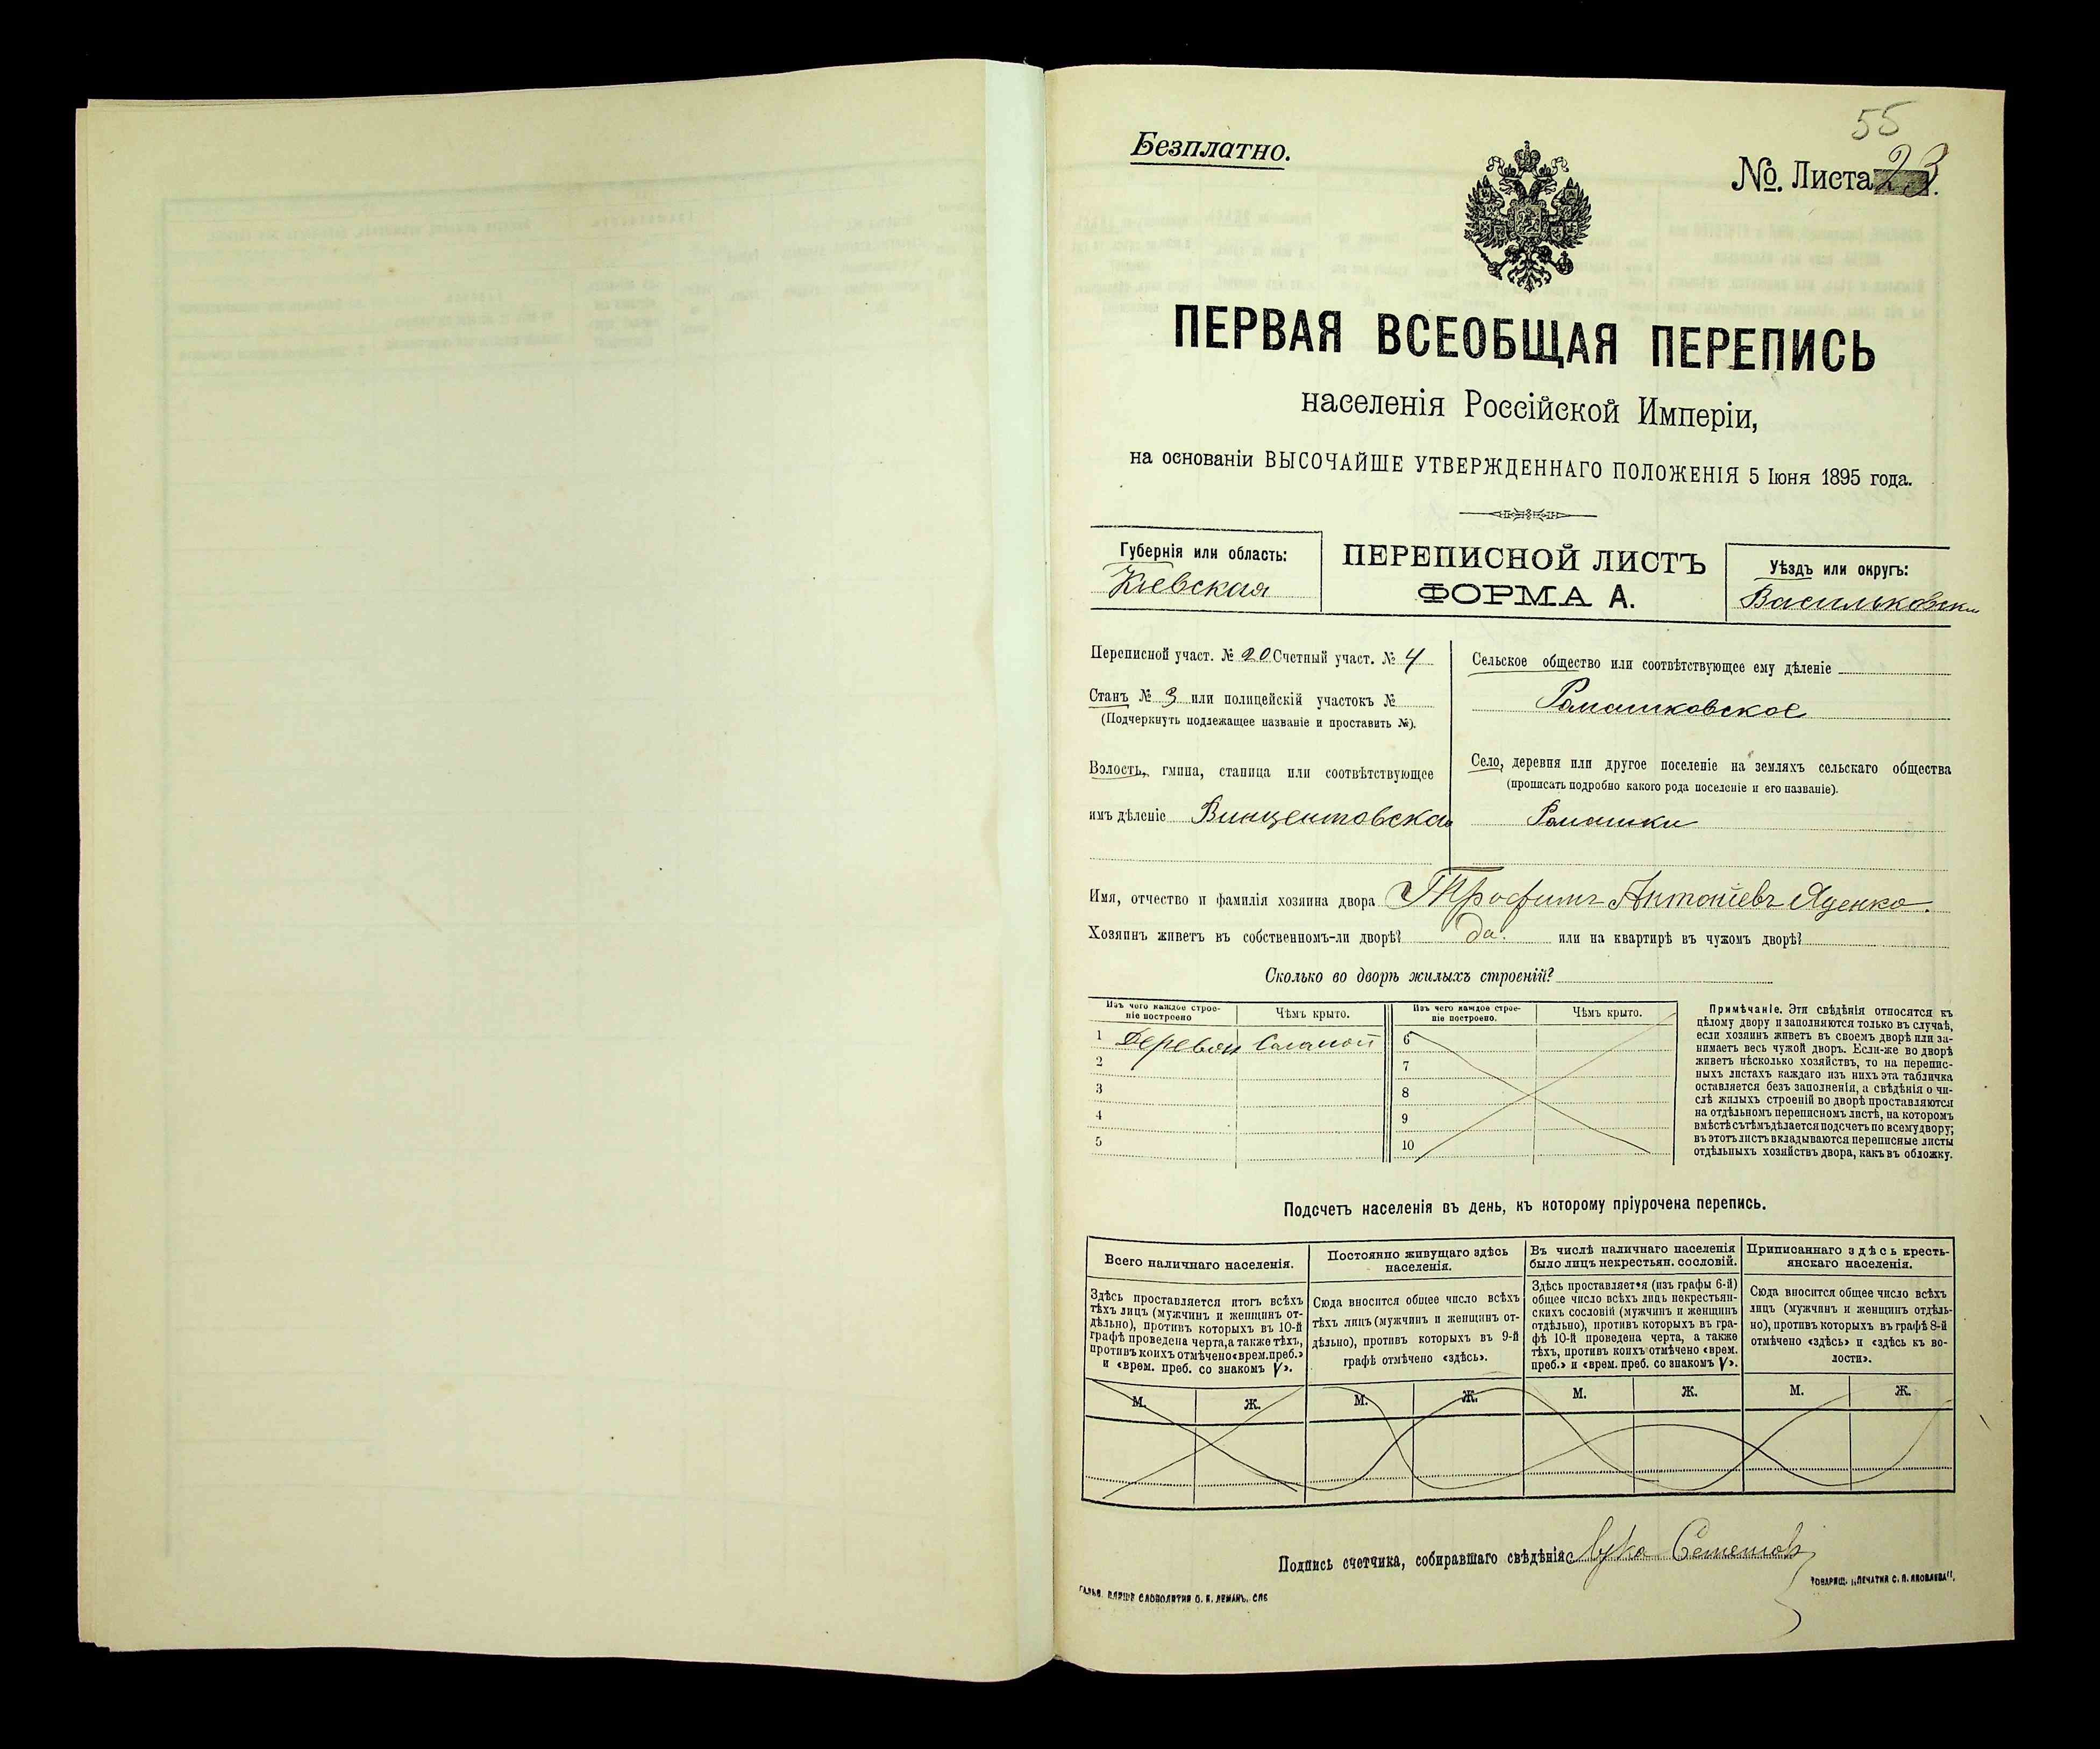 55
Безплатно.
№. Листа 23.
ПЕРВАЯ ВСЕОБЩАЯ ПЕРЕПИСЬ
населенія Россійской Имперіи,
на основаніи ВЫСОЧАЙШЕ УТВЕРЖДЕННАГО ПОЛОЖЕНІЯ 5 Іюня 1895 года.
Губернія или область:
Кіевская
ПЕРЕПИСНОЙ ЛИСТЪ
ФОРМА А.
Уѣздъ или округъ:
Васильковск
Переписной участ. № 20 Счетный участ. № 4
Станъ № 3 или полицейскій участокъ №
(Подчеркнуть подлежащее названіе и проставить №).
Волость, гмина, станица или соотвѣтствующее
имъ дѣленіе Винцентовская
Сельское общество или соотвѣтствующее ему дѣленіе
Ромашковское
Село, деревня или другое поселеніе на земляхъ сельскаго общества
(прописать подробно какого рода поселеніе и его названіе).
Ромашки
Имя, отчество и фамилія хозяина двора Трофимъ Антоніевъ Яценко.
Хозяинъ живетъ въ собственномъ-ли дворѣ? да. или на квартирѣ въ чужомъ дворѣ?
Сколько во дворѣ жилыхъ строеній?
Изъ чего каждое строе-
ніе построено
Чѣмъ крыто.
1 Деревян Саламой
2
3
4
5
Изъ чего каждое строе-
ніе построено.
Чѣмъ крыто.
6
7
8
9
10
Примѣчаніе. Эти свѣдѣнія относятся къ
цѣлому двору и заполняются только въ случаѣ,
если хозяинъ живетъ въ своемъ дворѣ или за-
нимаетъ весь чужой дворъ. Если-же во дворѣ
живетъ нѣсколько хозяйствъ, то на перепис-
ныхъ листахъ каждаго изъ нихъ эта табличка
оставляется безъ заполненія, а свѣдѣнія о чи-
слѣ жилыхъ строеній во дворѣ проставляются
на отдѣльномъ переписномъ листѣ, на которомъ
вмѣстѣ съ тѣмъ дѣлается подсчетъ по всему двору;
въ этотъ листъ вкладываются переписные листы
отдѣльныхъ хозяйствъ двора, какъ въ обложку.
Подсчетъ населенія въ день, къ которому пріурочена перепись.
Всего наличнаго населенія.
Здѣсь проставляется итогъ всѣхъ
тѣхъ лицъ (мужчинъ и женщинъ от-
дѣльно), противъ которыхъ въ 10-й
графѣ проведена черта, а также тѣхъ,
противъ коихъ отмѣчено «врем. преб.»
и «врем. преб. со знакомъ V».
М. Ж.
Постоянно живущаго здѣсь
населенія.
Сюда вносится общее число всѣхъ
тѣхъ лицъ (мужчинъ и женщинъ от-
дѣльно), противъ которыхъ въ 9-й
графѣ отмѣчено «здѣсь».
М. Ж.
Въ числѣ наличнаго населенія
было лицъ некрестьян. сословій.
Здѣсь проставляется (изъ графы 6-й)
общее число всѣхъ лицъ некрестьян-
скихъ сословій (мужчинъ и женщинъ
отдѣльно), противъ которыхъ въ гра-
фѣ 10-й проведена черта, а также
тѣхъ, противъ коихъ отмѣчено «врем.
преб.» и «врем. преб. со знакомъ V».
М. Ж.
Приписаннаго здѣсь кресть-
янскаго населенія.
Сюда вносится общее число всѣхъ
лицъ (мужчинъ и женщинъ отдѣль-
но), противъ которыхъ въ графѣ 8-й
отмѣчено «здѣсь» и «здѣсь къ во-
лости».
М. Ж.
Подпись счетчика, собиравшаго свѣдѣнія Лука
СЛОВОЛИТНЯ О. И. ЛЕМАНЪ, СПБ
ТОВАРИЩ. „ПЕЧАТНЯ С. П. ЯКОВЛЕВА".